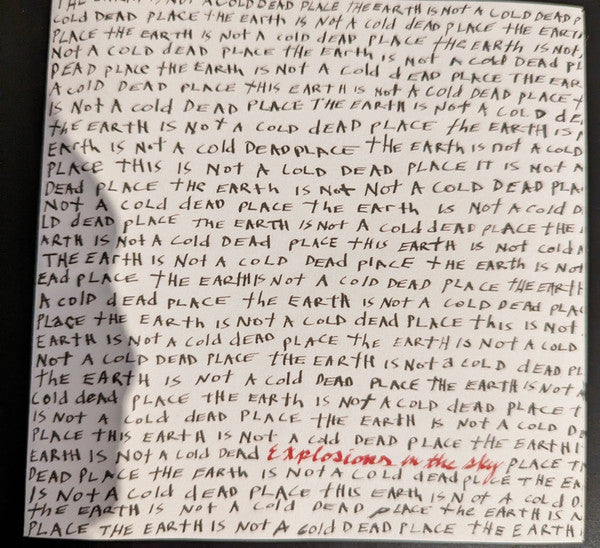 THE EARTH IS NOT A COLD DEAD PLACE THE EARTH IS NOT A COLD DEAD P
COLD DEAD PLACE tHE EARTH IS NOT A Cold dEAD PLACE tHE EARTH
PLACE tHE EARTH IS NOT A cold dEAD PLACE tHE EARTH IS NOT
NOt A COLD dEAD PLACE tHE EARth is not A cold DEAD Pl
DEAD plAcE tHE EARtH IS Not A Cold dEAD PLACE THE EAR
A colD DEAD PLACE tHIS EARTH IS Not A COLD DEAD PLACE t
IS Not A cold DEAD PLACE THE EARtH IS NOt A COLD dE
tHE EARTH IS NOT A COLD dEAD PLACE tHE EARTH IS
EARth IS Not A Cold DEAD PLACE tHE EARTH IS not A COLD
PLACE tHIS IS NOt A COLD DEAD PLACE It IS NOt A
DEAD PLACE tHE EARth IS Not NOt A COLD DEAD PLA
NOt A cold dEAD PLACE tHE EARth IS NOt A Cold D
LD dEAD PLACE THE EARTH IS NOT A Cold dEAD PLACE tHE
ARTH IS Not A Cold DEAd PLACE tHIS EARTH IS Not cold A
THE EARtH IS Not A COLD DEAd plACE tHE EARth IS Not
EAd PLACE tHE EARtH IS NOT A COLD DEAd PLACE tHE EARtH
A cold dEAd PLACE tHE EARTH IS Not A COLD DEAd PLAC
PlACE tHE EARth IS NOt A COLD dEAd PLACE tHIS IS NOt
EARTH IS Not A Cold dEAD PLACE tHE EARTH IS NOt A COLD
Not A COLD DEAD PLACE tHE EARTH IS Not a COLD dEAD PL
tHE EARTH IS NOt A Cold DEAD PLACE tHE EARTH IS NOT A
Cold dead PLACE tHE EARtH IS Not A COLD DEAD PLACE t
IS NOt A Cold dEAD PLACE tHE EARtH IS NOt A COLD D
PLACE tHIS EARTH IS NOt A cold DEAD PLACE tHE EARTH I
EARTH IS Not A Cold DEAD Explosions in the sky PLACE T
DEAD PLACE tHE EARth IS NOt A Cold dEAd PLACE tHE EA
IS NOt A Cold dEAD PLACE tHIS EARtH IS Not A COLD D
tHE EARTH IS NOt A COLD DEAD PLACE tHE EARTH IS
PLACE THE EARTH IS NOt A Cold DEAD PLACE tHE EARTH